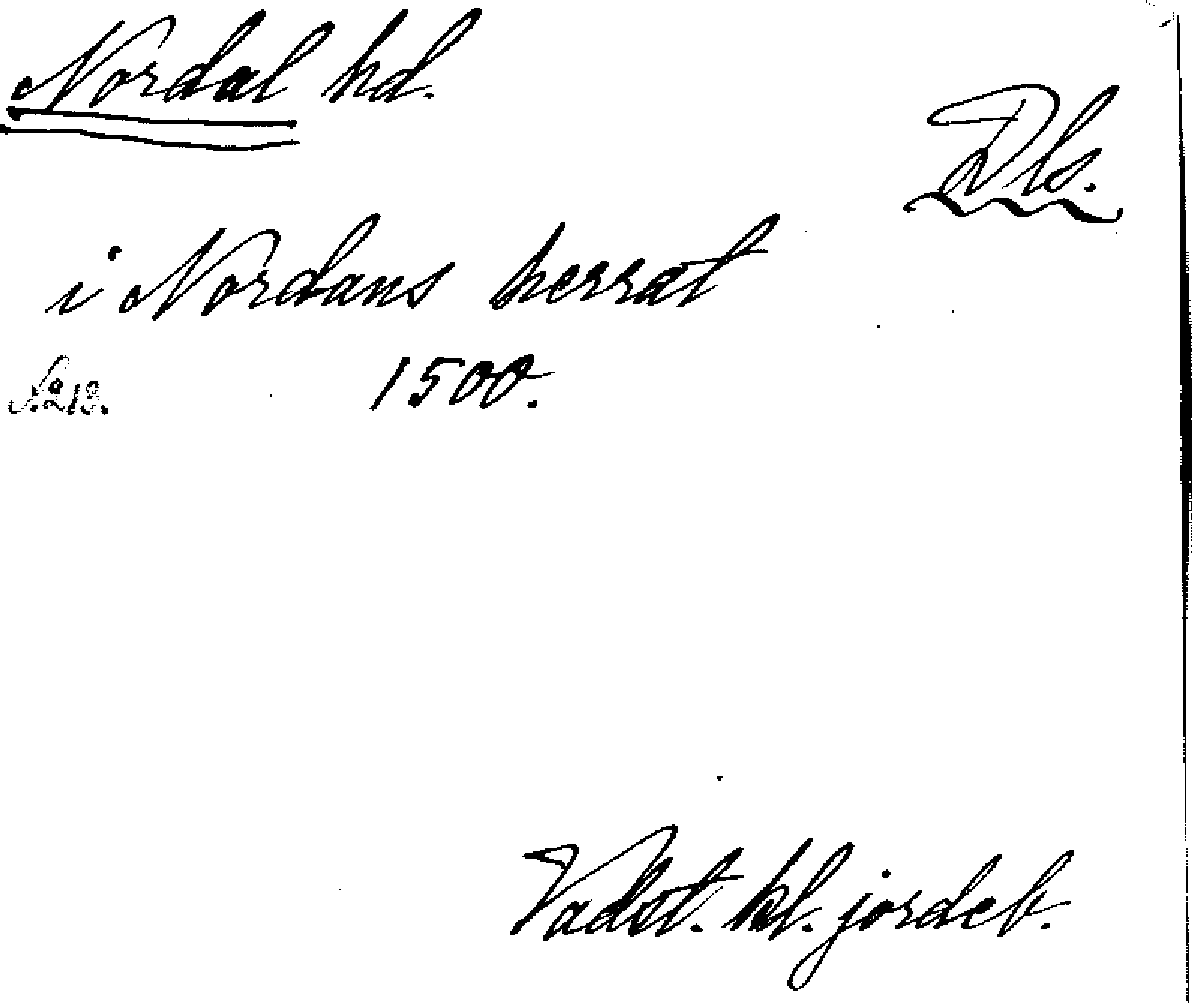 Nordal hd.
Dls.
i Nordans herrat
S. 213. 1500.
Vadst. kl. jordeb.